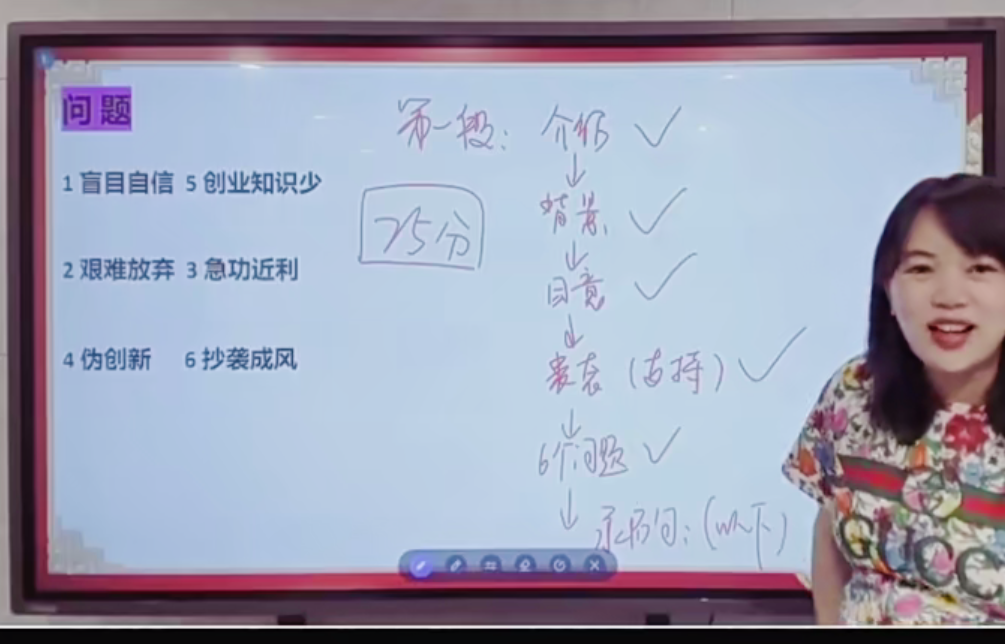 问题
1 盲目自信 5 创业知识少
2 艰难放弃 3 急功近利
4 伪创新 6 抄袭成风
第一段: 介绍
背景
25分
目意
(支持)
6个问题
承上句: (以下)
GUCCI